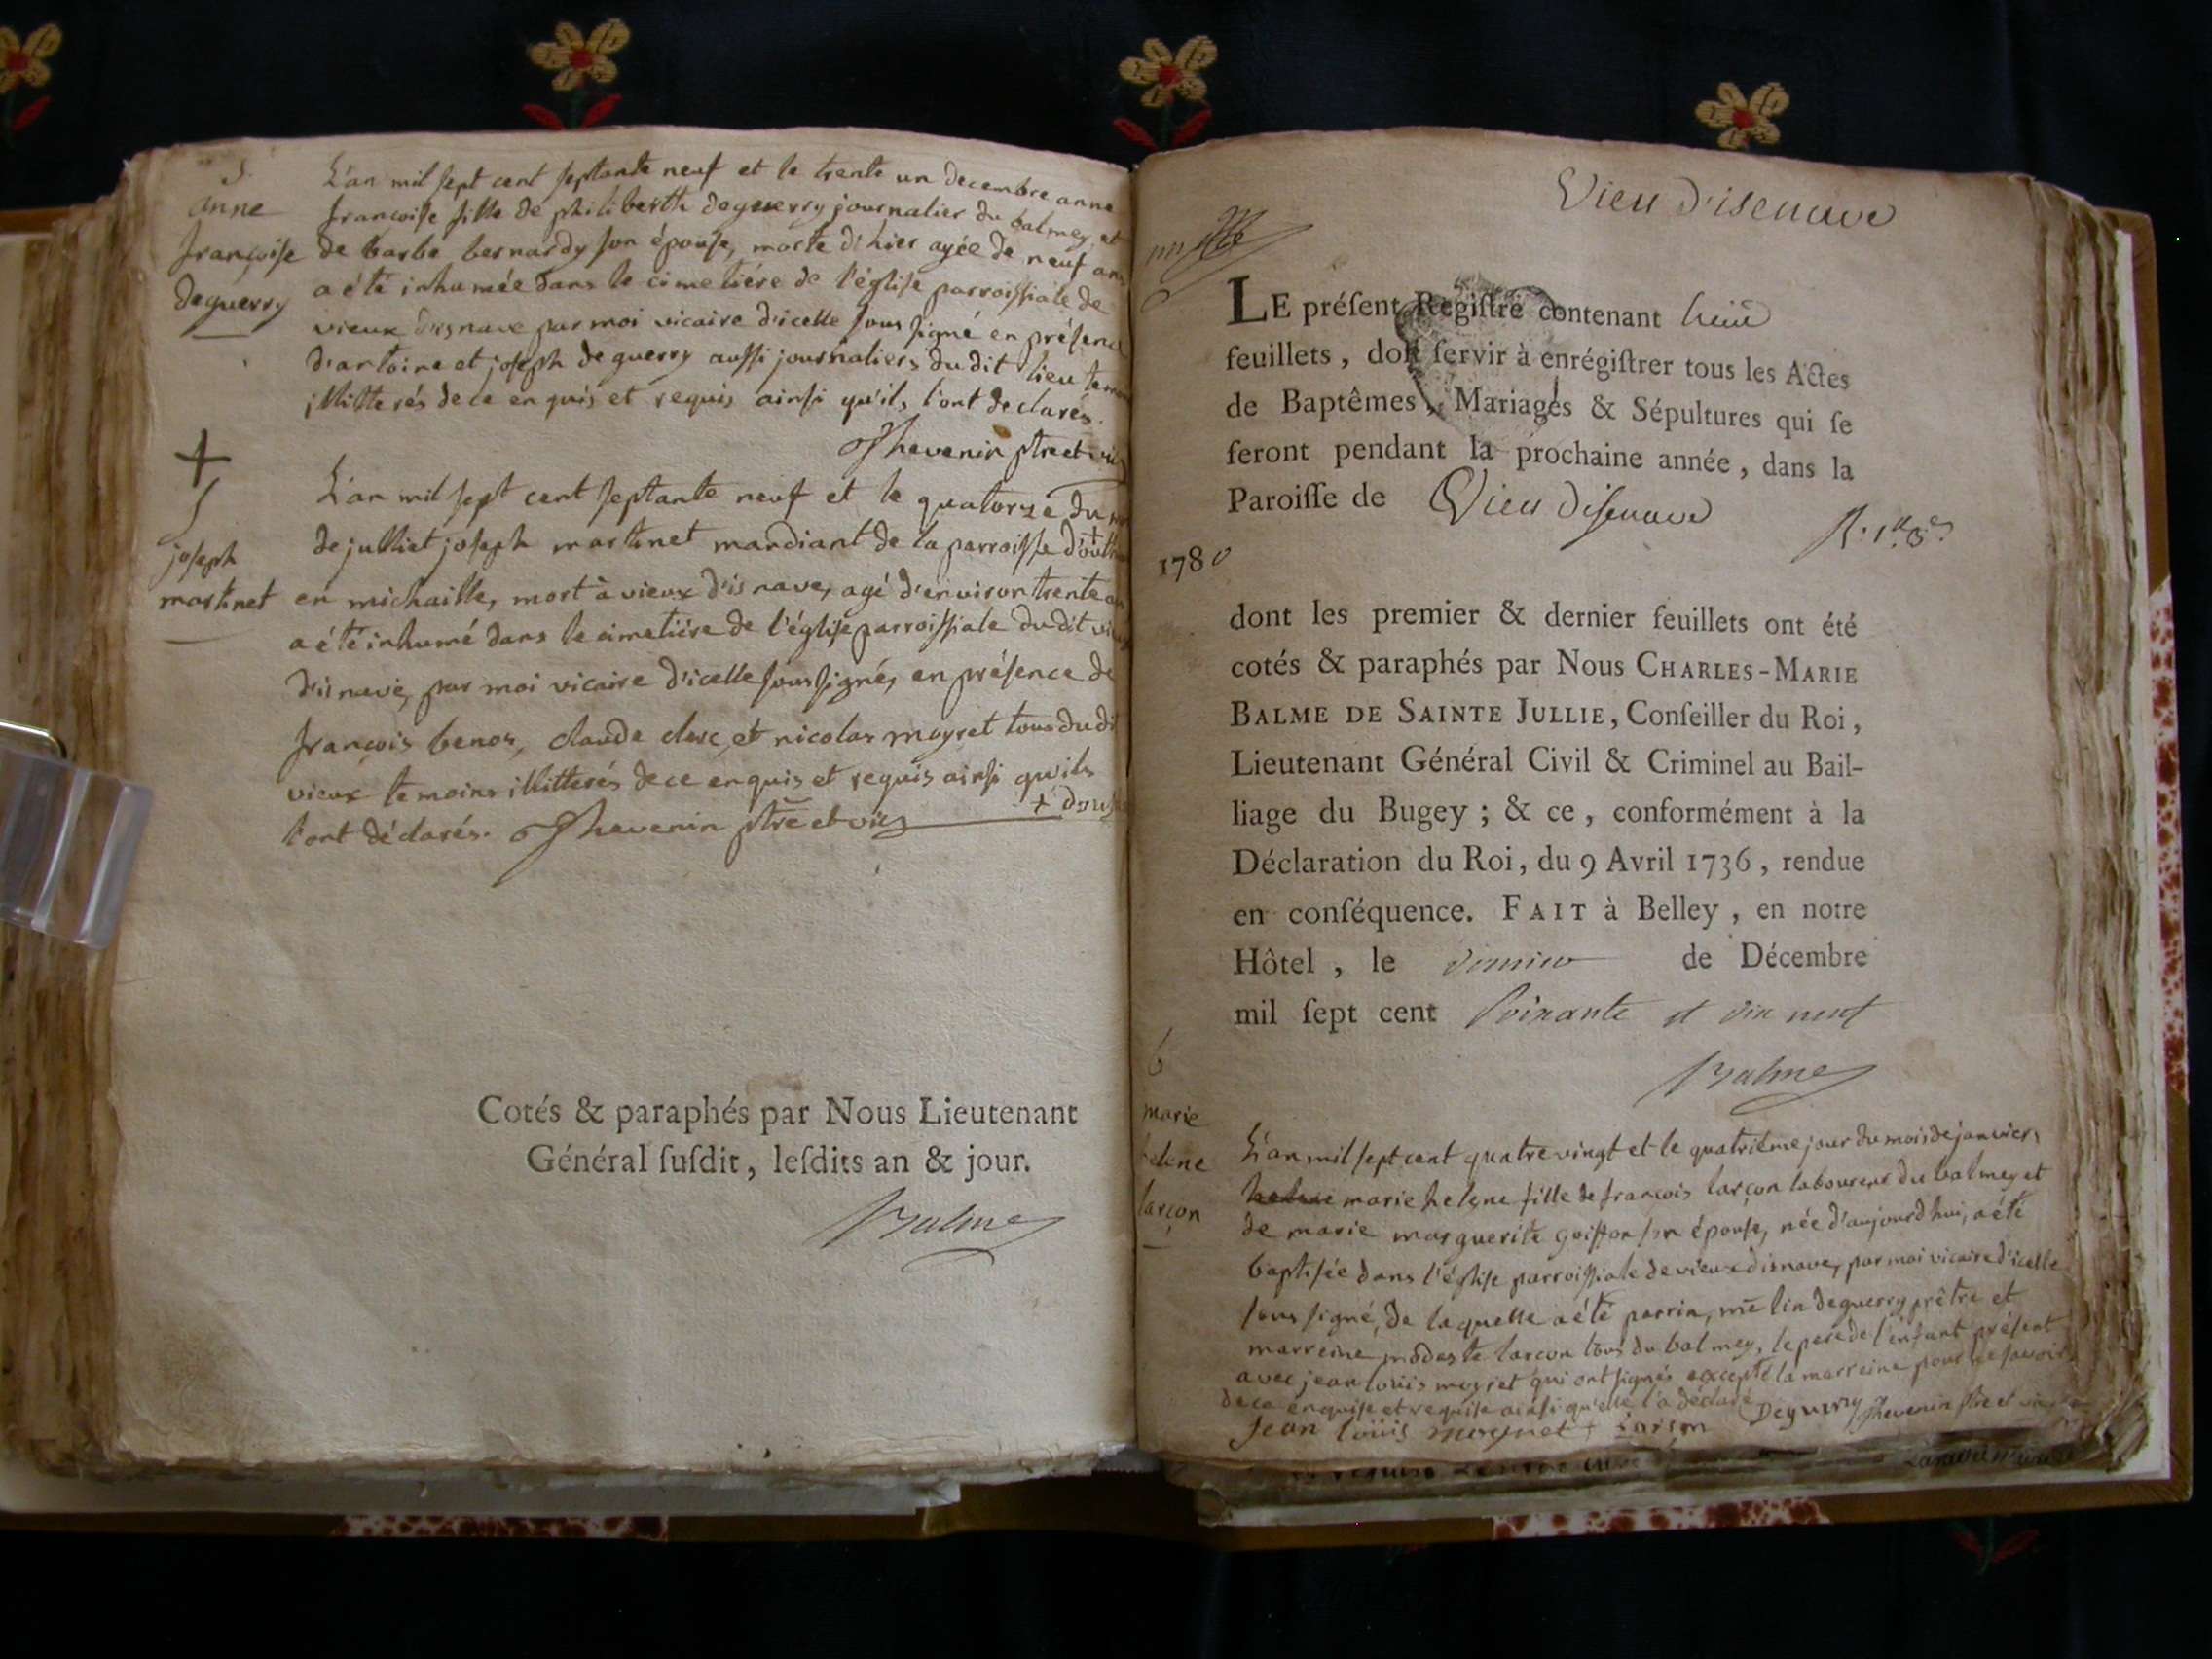 S.
anne
françoise
deguerry
L'an mil sept cent septante neuf et le trente un decembre anne
françoise fille de philiberth deguerry journalier du balmey et
de barbe bernardy son épouse, morte d'hier agée de neuf ans
a été inhumée dans le cimetiére de l'église parroissiale de
vieux d'isnave par moi vicaire d'icelle sous signé en présence
d'antoine et joseph deguerry aussi journaliers du dit lieu
illitterés de ce enquis et requis ainsi qu'ils l'ont declarés.
Thevenin ptre et vic
+
S
joseph
martinet
L'an mil sept cent septante neuf et le quatorze du
de julliet joseph martinet mandiant de la parroisse
en michaille, mort à vieux d'isnave, agé d'environ trente
a été inhumé dans le cimetiére de l'église parroissiale du dit
d'isnave, par moi vicaire d'icelle sous signé, en présence de
françois benos, claude clerc, et nicolas moyret tous du dit
vieux temoins illitterés de ce enquis et requis ainsi qu'ils
l'ont déclarés. Thevenin ptre et vic
Cotés & paraphés par Nous Lieutenant
Général ſuſdit, leſdits an & jour.
Balme
Vieu d'isenave
LE préſent Regiſtre contenant huit
feuillets, doit ſervir à enrégiſtrer tous les Actes
de Baptêmes, Mariages & Sépultures qui ſe
feront pendant la prochaine année, dans la
Paroiſſe de Vieu d'isenave
1780
dont les premier & dernier feuillets ont été
cotés & paraphés par Nous CHARLES-MARIE
BALME DE SAINTE JULLIE, Conſeiller du Roi,
Lieutenant Général Civil & Criminel au Bail-
liage du Bugey ; & ce, conformément à la
Déclaration du Roi, du 9 Avril 1736, rendue
en conſéquence. FAIT à Belley, en notre
Hôtel, le premier de Décembre
mil ſept cent soixante et dix neuf
Balme
b
marie
helene
larçon
L'an mil sept cent quatre vingt et le quatriéme jour du mois de janvier,
marie helene fille de françois larçon laboureur du balmey et
de marie marguerite goiffon son épouse, née d'aujourd'hui, a été
baptisée dans l'église parroissiale de vieux d'isnave, par moi vicaire d'icelle
sous signé, de laquelle a été parrin, mre lin deguerry prêtre et
marreine modeste larcon tous du balmey, le pere de l'enfant présent
avec jean loüis moyret qui ont signés excepté la marreine pour ne savoir
de ce enquise et requise ainsi qu'elle l'a déclaré
Jean loüis moyret Larson Deguerry Thevenin ptre et vic